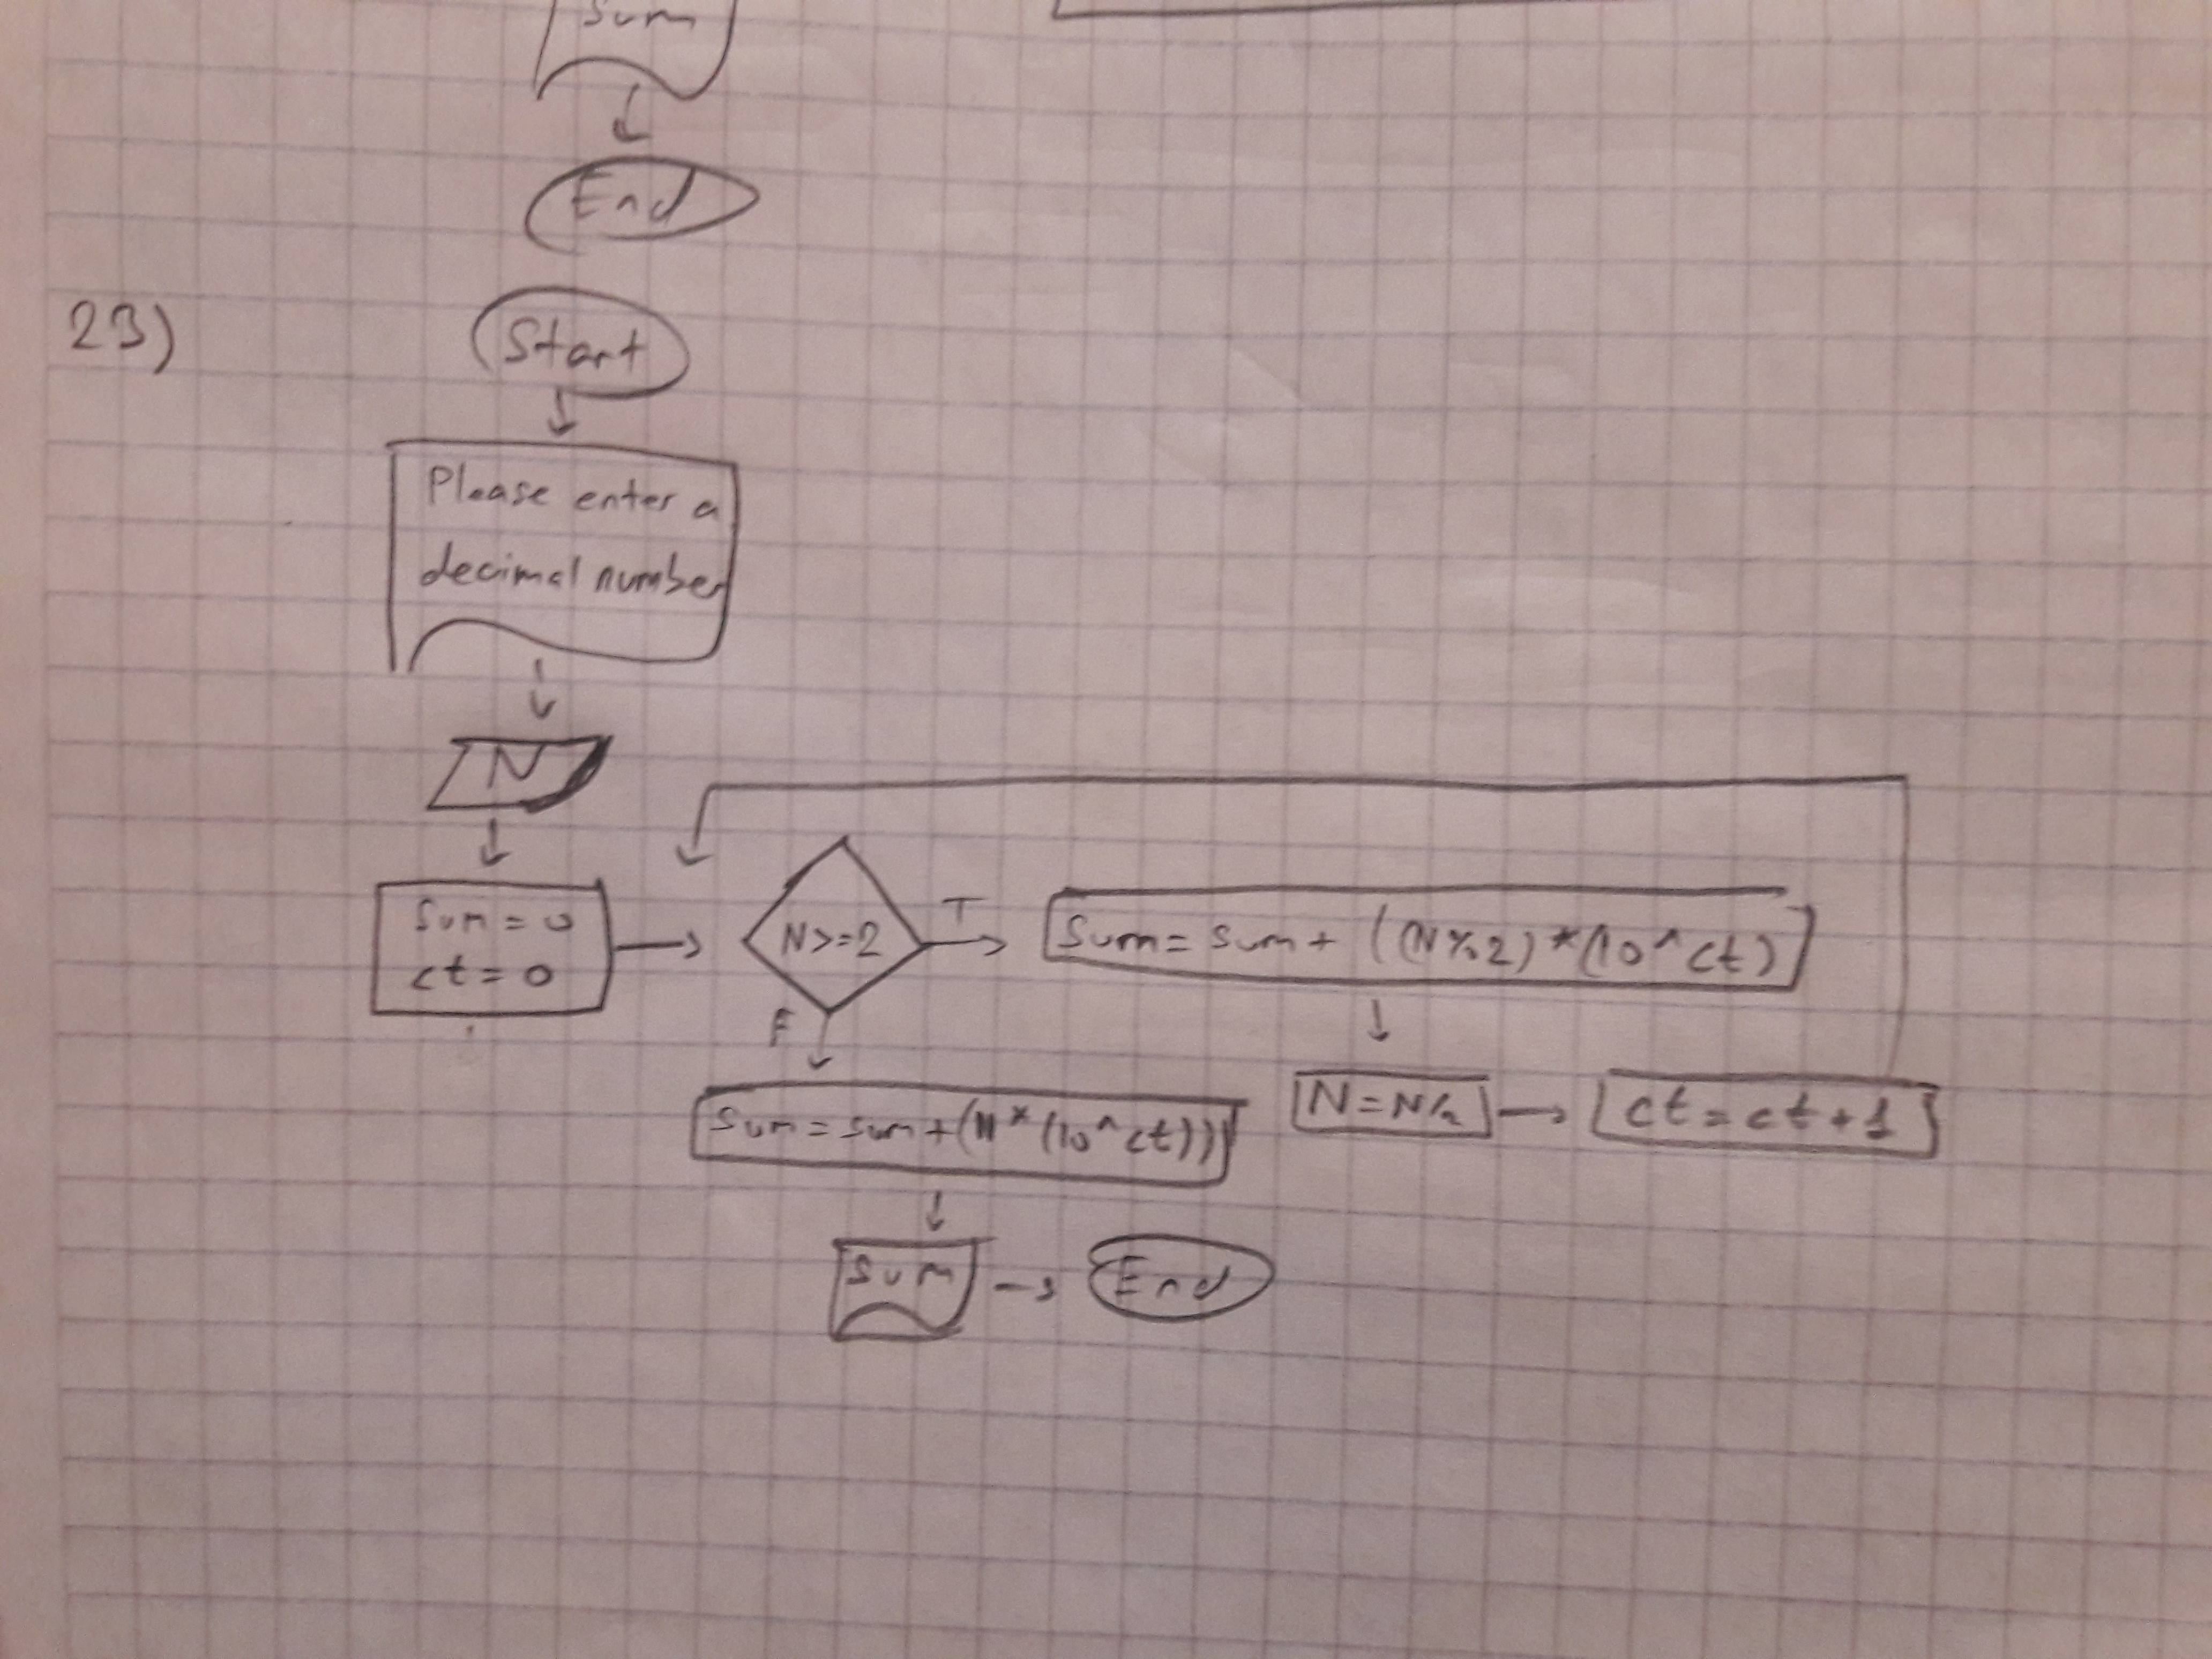 Sum
End
23)
Start
Please enter a
decimal number
N
Sum = 0
ct = 0
N>=2
T
Sum = sum + ((N%2)*(10^ct)
F
N=N/2
ct = ct + 1
Sum = sum + (N * (10^ct))
Sum
End